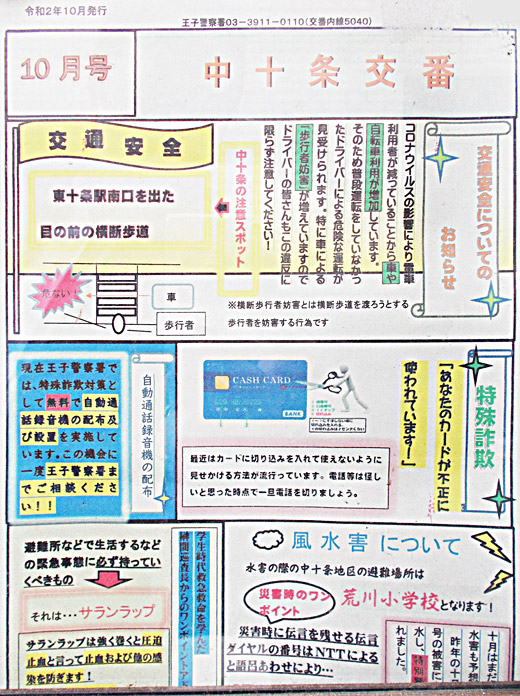 令和2年10月発行
王子警察署03-3911-0110(交番内線5040)
10月号
中十条交番
交通安全についての
お知らせ
コロナウイルスの影響により電車
利用者が減っていることから車や
自転車利用が増加しています。
そのため普段運転をしていなかっ
たドライバーによる危険な運転が
見受けられます。特に車による
「歩行者妨害」が増えていますので
ドライバーの皆さんもこの違反に
限らず注意してください!
※横断歩行者妨害とは横断歩道を渡ろうとする
歩行者を妨害する行為です
交通安全
中十条の注意スポット
東十条駅南口を出た
目の前の横断歩道
危ない!
車
歩行者
特殊詐欺
「あなたのカードが不正に
使われています!」
CASH CARD
BANK
最近はカードに切り込みを入れて使えないように
見せかける方法が流行っています。電話等は怪し
いと思った時点で一旦電話を切りましょう。
自動通話録音機の配布
現在王子警察署で
は、特殊詐欺対策と
して無料で自動通
話録音機の配布及
び設置を実施して
います。この機会に
一度王子警察署ま
でご相談くださ
い!!
風水害について
水害の際の中十条地区の避難場所は
荒川小学校となります!
災害時のワン
ポイント
災害時に伝言を残せる伝言
ダイヤルの番号はNTTによる
と語呂あわせにより…
十月はまだ
水害も予想
昨年の十
号の被害に
水し、特別警
れました。
学生時代救急救命を学んだ
榊間巡査長からのワンポイントアド
避難所などで生活するなど
の緊急事態に必ず持ってい
くべきもの
それは…サランラップ
サランラップは強く巻くと圧迫
止血と言って止血および他の感
染を防ぎます!